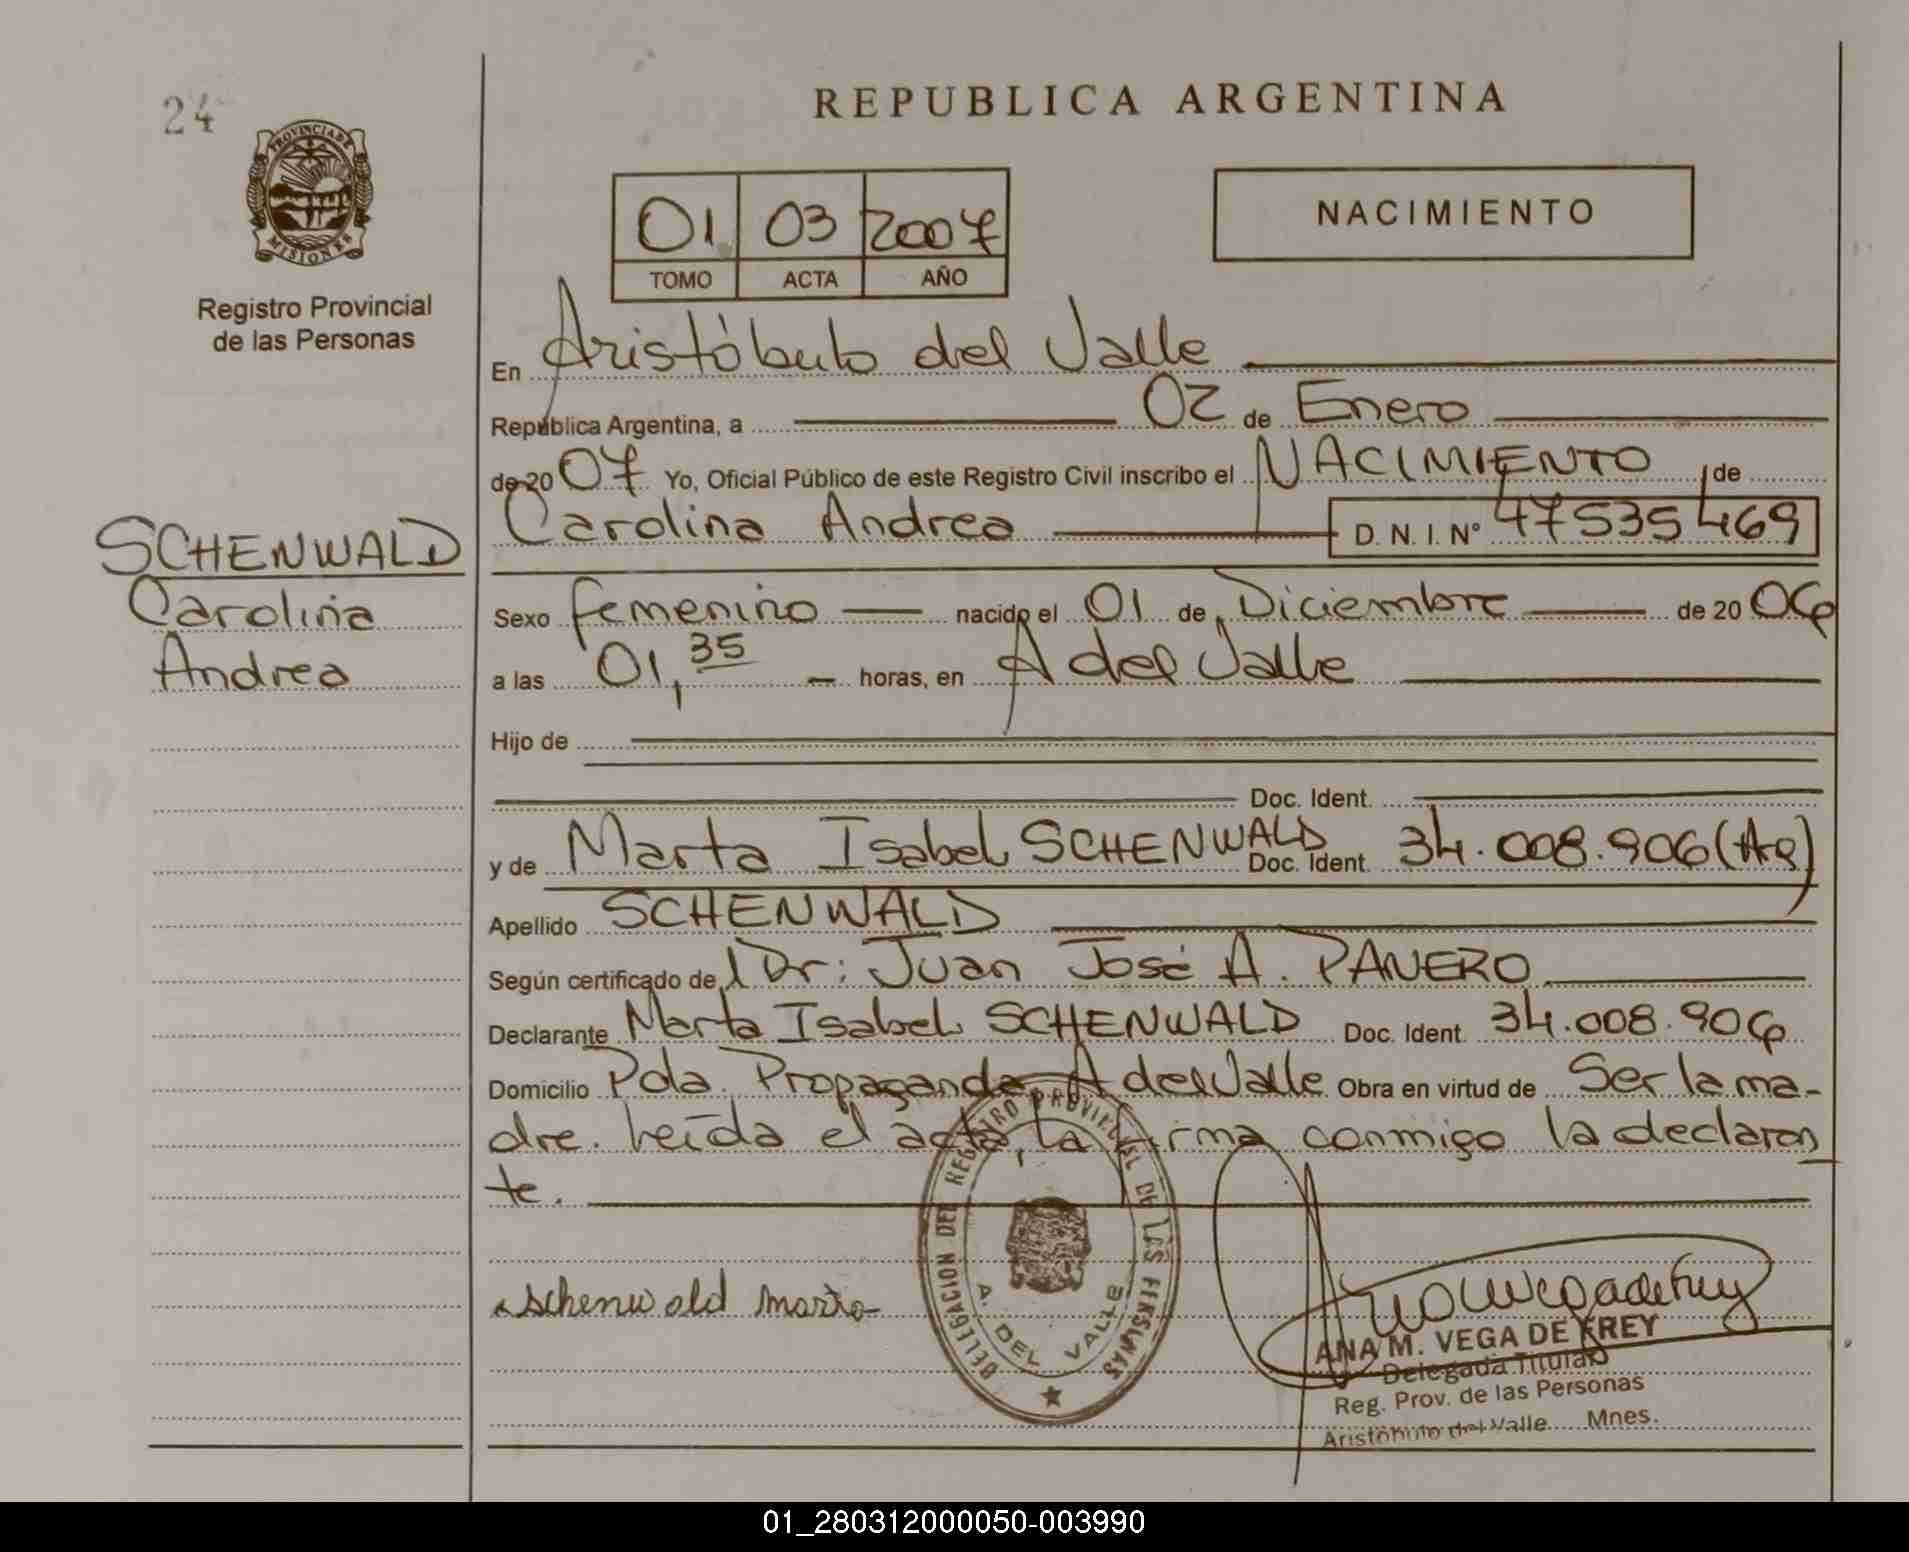 24
PROVINCIA DE
MISIONES
Registro Provincial
de las Personas
SCHENWALD
Carolina
Andrea
REPUBLICA ARGENTINA
01 03 2007
TOMO ACTA AÑO
NACIMIENTO
En Aristóbulo del Valle
República Argentina, a 02 de Enero
de 2007 Yo, Oficial Público de este Registro Civil inscribo el NACIMIENTO de
Carolina Andrea D. N. I. N° 47535469
Sexo femenino nacido el 01 de Diciembre de 2006
a las 01,35 horas, en A del Valle
Hijo de
Doc. Ident.
y de Marta Isabel SCHENWALD Doc. Ident. 34.008.906 (Ar)
Apellido SCHENWALD
Según certificado de l Dr: Juan José A. PANERO
Declarante Marta Isabel SCHENWALD Doc. Ident. 34.008.906
Domicilio Pda. Propaganda A del Valle Obra en virtud de Ser la ma-
dre. Leída el acta, la firma conmigo la declaran
te.
DELEGACION DEL REGISTRO PROVINCIAL DE LAS PERSONAS
A. DEL VALLE
schenwald marta
Ana M Vega de Frey
ANA M. VEGA DE FREY
Delegada Titular
Reg. Prov. de las Personas
Aristóbulo del Valle Mnes.
01_280312000050-003990